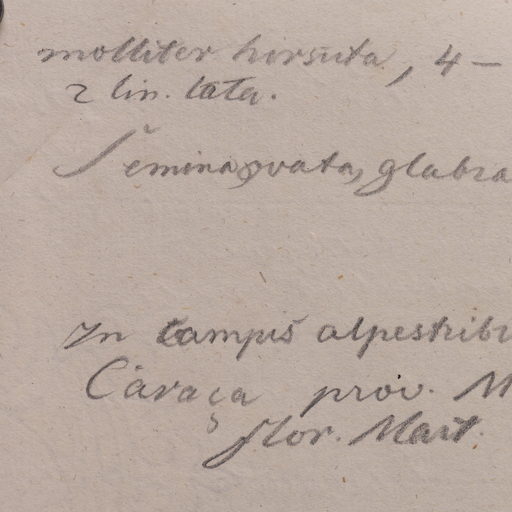 molliter hirsuta, 4 –
2 lin. lata.
Semina ovata, glabra
In campis alpestrib
Caraça prov. M
flor. Mart.